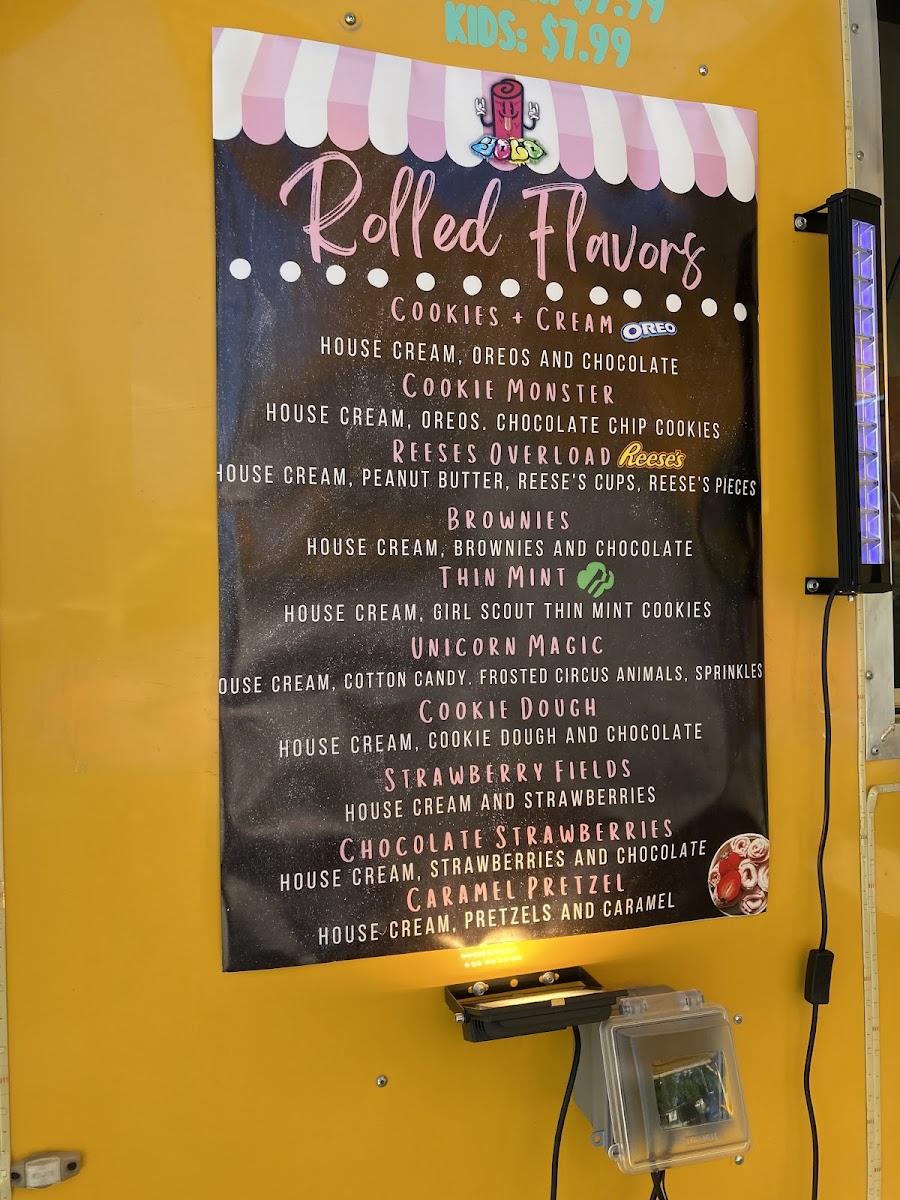 $7.99
KIDS: $7.99
YOLO
Rolled Flavors
COOKIES + CREAM OREO
HOUSE CREAM, OREOS AND CHOCOLATE
COOKIE MONSTER
HOUSE CREAM, OREOS. CHOCOLATE CHIP COOKIES
REESES OVERLOAD Reese's
HOUSE CREAM, PEANUT BUTTER, REESE'S CUPS, REESE'S PIECES
BROWNIES
HOUSE CREAM, BROWNIES AND CHOCOLATE
THIN MINT
HOUSE CREAM, GIRL SCOUT THIN MINT COOKIES
UNICORN MAGIC
OUSE CREAM, COTTON CANDY. FROSTED CIRCUS ANIMALS, SPRINKLES
COOKIE DOUGH
HOUSE CREAM, COOKIE DOUGH AND CHOCOLATE
STRAWBERRY FIELDS
HOUSE CREAM AND STRAWBERRIES
CHOCOLATE STRAWBERRIES
HOUSE CREAM, STRAWBERRIES AND CHOCOLATE
CARAMEL PRETZEL
HOUSE CREAM, PRETZELS AND CARAMEL